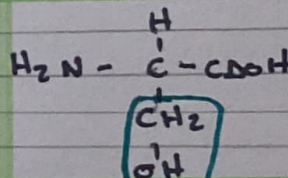 H
H2N - C - COOH
CH2
OH